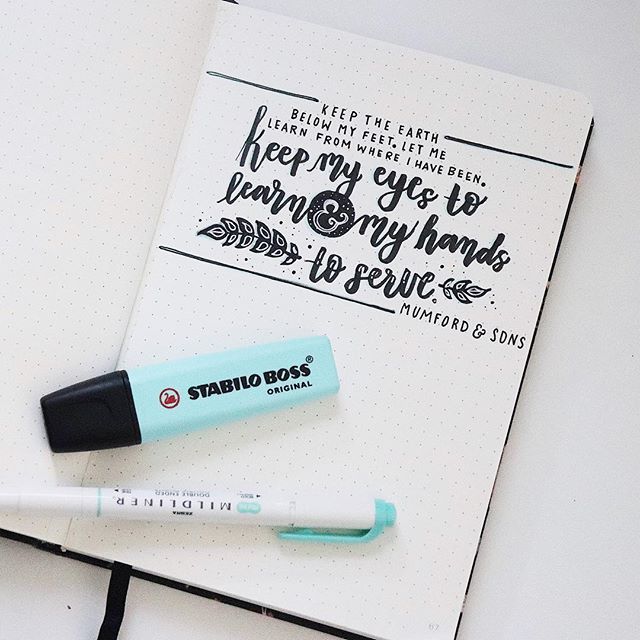 KEEP THE EARTH
BELOW MY FEET. LET ME
LEARN FROM WHERE I HAVE BEEN.
keep my eyes to
learn & my hands
to serve.
MUMFORD & SONS
STABILO BOSS®
ORIGINAL
ZEBRA
MILDLINER
DOUBLE ENDED
67